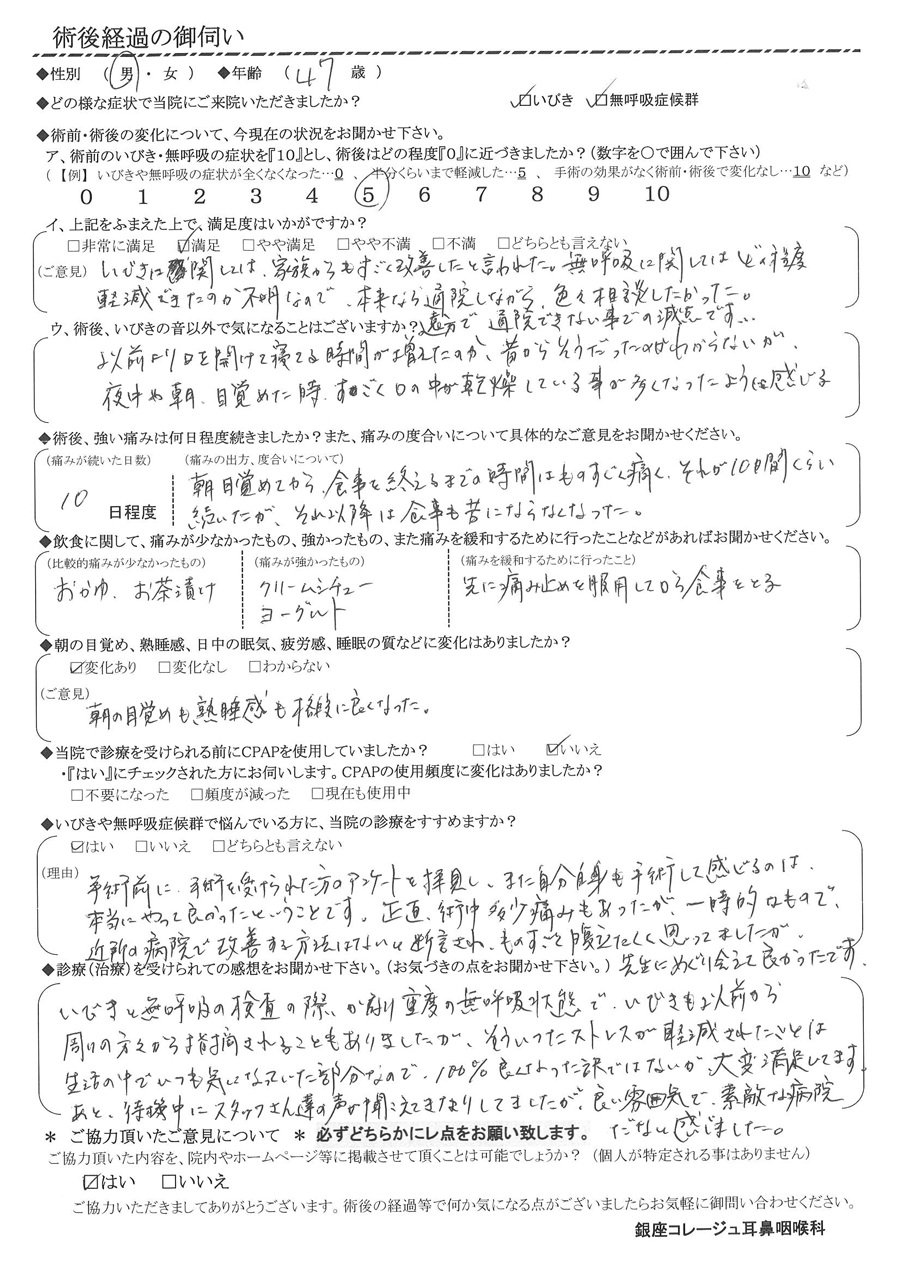 術後経過の御伺い
◆性別 （ 男 ・ 女 ） ◆年齢 （ 47 歳 ）
◆どの様な症状で当院にご来院いただきましたか？ ☑いびき ☑無呼吸症候群
◆術前・術後の変化について、今現在の状況をお聞かせ下さい。
ア、術前のいびき・無呼吸の症状を『10』とし、術後はどの程度『0』に近づきましたか？（数字を○で囲んで下さい）
（ 【例】 いびきや無呼吸の症状が全くなくなった…0 、 半分くらいまで軽減した…5 、 手術の効果がなく術前・術後で変化なし…10 など）
0 1 2 3 4 5 6 7 8 9 10
イ、上記をふまえた上で、満足度はいかがですか？
□非常に満足 ☑満足 □やや満足 □やや不満 □不満 □どちらとも言えない
（ご意見） いびきに関しては、家族からもすごく改善したと言われた。無呼吸に関してはどの程度
軽減できたのか不明なので、本来なら通院しながら、色々相談したかった。
ウ、術後、いびきの音以外で気になることはございますか？ 遠方で通院できない事での減点です...
以前より口を開けて寝てる時間が増えたのか、昔からそうだったのかわからないが、
夜中や朝、目覚めた時、すごく口の中が乾燥している事が多くなったように感じる
◆術後、強い痛みは何日程度続きましたか？また、痛みの度合いについて具体的なご意見をお聞かせください。
（痛みが続いた日数） （痛みの出方、度合いについて）
10 日程度
朝目覚めてから、食事を終えるまでの時間はものすごく痛く、それが10日間くらい
続いたが、それ以降は食事も苦にならなくなった。
◆飲食に関して、痛みが少なかったもの、強かったもの、また痛みを緩和するために行ったことなどがあればお聞かせください。
（比較的痛みが少なかったもの） （痛みが強かったもの） （痛みを緩和するために行ったこと）
おかゆ、お茶漬け クリームシチュー 先に痛み止めを服用してから食事をとる
ヨーグルト
◆朝の目覚め、熟睡感、日中の眠気、疲労感、睡眠の質などに変化はありましたか？
☑変化あり □変化なし □わからない
（ご意見）
朝の目覚めも熟睡感も格段に良くなった。
◆当院で診療を受けられる前にCPAPを使用していましたか？ □はい ☑いいえ
・『はい』にチェックされた方にお伺いします。CPAPの使用頻度に変化はありましたか？
□不要になった □頻度が減った □現在も使用中
◆いびきや無呼吸症候群で悩んでいる方に、当院の診療をすすめますか？
☑はい □いいえ □どちらとも言えない
（理由） 手術前に、手術を受けられた方のアンケートを拝見し、また自分自身も手術して感じるのは、
本当にやって良かったということです。正直、術中多少痛みもあったが、一時的なもので、
近所の病院で改善する方法はないと断言され、ものすごく腹立たしく思ってましたが、
◆診療（治療）を受けられての感想をお聞かせ下さい。（お気づきの点をお聞かせ下さい。） 先生にめぐり会えて良かったです。
いびきと無呼吸の検査の際、かなり重度の無呼吸状態で、いびきも以前から
周りの方々から指摘されることもありましたが、そういったストレスが軽減されたことは
生活の中でいつも気になっていた部分なので、100%良くなった訳ではないが、大変満足してます。
あと、待機中にスタッフさん達の声が聞こえてきたりしてましたが、良い雰囲気で、素敵な病院
だなと感じました。
＊ ご協力頂いたご意見について ＊ 必ずどちらかにレ点をお願い致します。
ご協力頂いた内容を、院内やホームページ等に掲載させて頂くことは可能でしょうか？ （個人が特定される事はありません）
☑はい □いいえ
ご協力いただきましてありがとうございます。術後の経過等で何か気になる点がございましたらお気軽に御問い合わせください。
銀座コレージュ耳鼻咽喉科